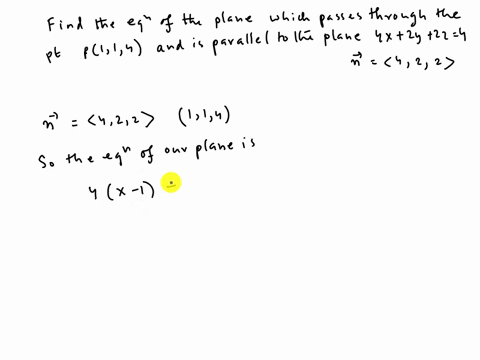 Find the eqⁿ of the plane which passes through the
pt P(1,1,4) and is parallel to the plane 4x+2y+2z=4
n⃗ = <4, 2, 2>
n⃗ = <4,2,2> (1,1,4)
So the eqⁿ of our plane is
4 (x-1)